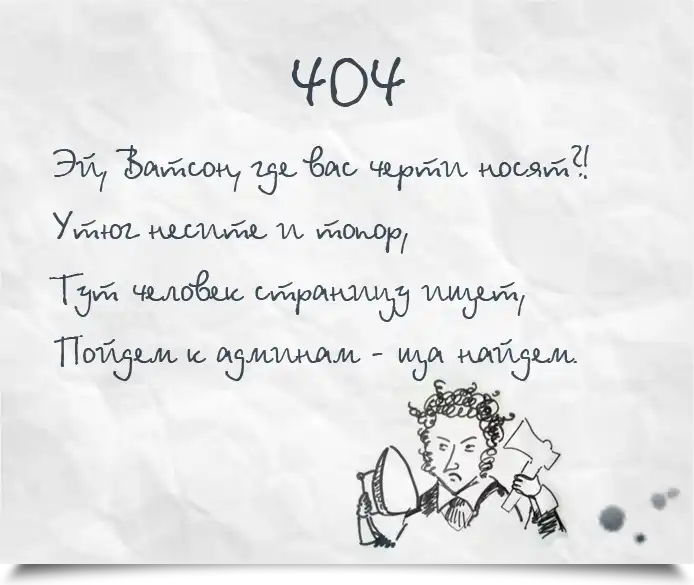 404
Эй, Ватсон, где вас черти носят?!
Утюг несите и топор,
Тут человек страницу ищет,
Пойдем к админам - ща найдем.